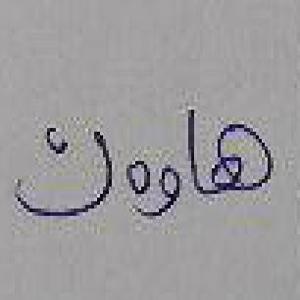 هاوون